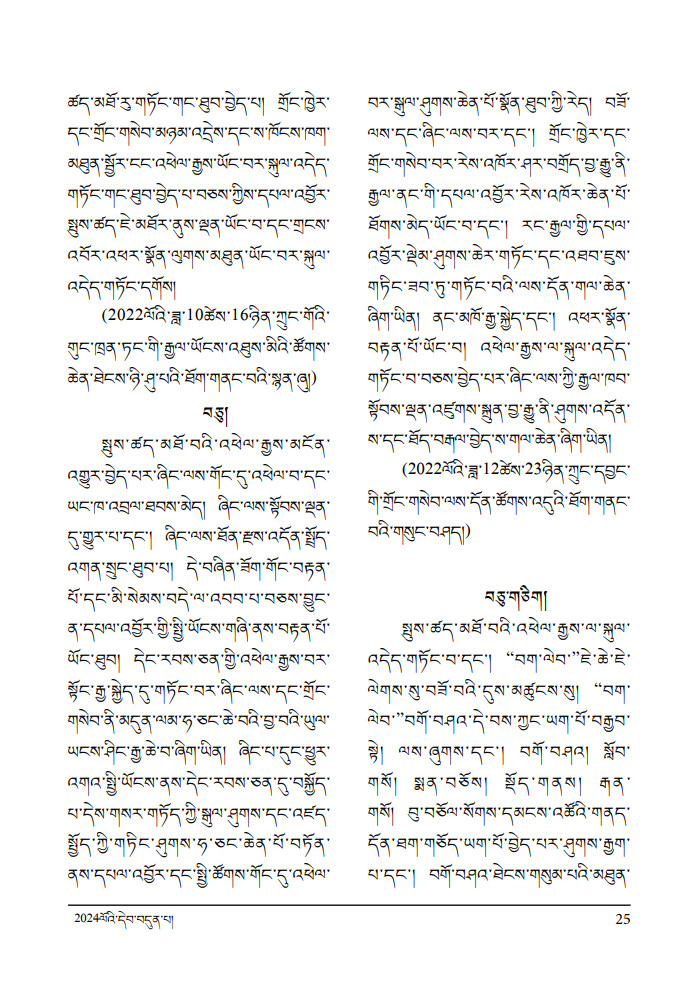 ཚད་མཐོ་རུ་གཏོང་གང་ཐུབ་བྱེད་པ། གྲོང་ཁྱེར་
དང་གྲོང་གསེབ་མཉམ་འདྲེས་དང་ས་ཁོངས་ཁག་
མཐུན་སྦྱོར་ངང་འཕེལ་རྒྱས་ཡོང་བར་སྐུལ་འདེད་
གཏོང་གང་ཐུབ་བྱེད་པ་བཅས་ཀྱིས་དཔལ་འབྱོར་
སྤུས་ཚད་ཇེ་མཐོར་ནུས་ལྡན་ཡོང་བ་དང་གྲངས་
འབོར་འཕར་སྣོན་ལུགས་མཐུན་ཡོང་བར་སྐུལ་
འདེད་གཏོང་དགོས།
(2022ལོའི་ཟླ་10ཚེས་16ཉིན་ཀྲུང་གོའི་
གུང་ཁྲན་ཏང་གི་རྒྱལ་ཡོངས་འཐུས་མིའི་ཚོགས་
ཆེན་ཐེངས་ཉི་ཤུ་པའི་ཐོག་གནང་བའི་སྙན་ཞུ།)
བཅུ།
སྤུས་ཚད་མཐོ་བའི་འཕེལ་རྒྱས་མངོན་
འགྱུར་བྱེད་པར་ཞིང་ལས་གོང་དུ་འཕེལ་བ་དང་
ཡང་ཁ་འབྲལ་ཐབས་མེད། ཞིང་ལས་སྟོབས་ལྡན་
དུ་གྱུར་པ་དང་། ཞིང་ལས་ཐོན་རྫས་འདོན་སྤྲོད་
འགན་སྲུང་ཐུབ་པ། དེ་བཞིན་ཟོག་གོང་བརྟན་
པོ་དང་མི་སེམས་བདེ་ལ་འབབ་པ་བཅས་བྱུང་
ན་དཔལ་འབྱོར་གྱི་སྤྱི་ཡོངས་གཞི་ནས་བརྟན་པོ་
ཡོང་ཐུབ། དེང་རབས་ཅན་གྱི་འཕེལ་རྒྱས་བར་
སྟོང་རྒྱ་སྐྱེད་དུ་གཏོང་བར་ཞིང་ལས་དང་གྲོང་
གསེབ་ནི་མདུན་ལམ་ཧ་ཅང་ཆེ་བའི་བྱ་བའི་ཡུལ་
ཡངས་ཤིང་རྒྱ་ཆེ་བ་ཞིག་ཡིན། ཞིང་པ་དུང་ཕྱུར་
འགའ་སྤྱི་ཡོངས་ནས་དེང་རབས་ཅན་དུ་བསྐྱོད་
པ་དེས་གསར་གཏོད་ཀྱི་སྒུལ་ཤུགས་དང་འཛད་
སྤྱོད་ཀྱི་གཏིང་ཤུགས་ཧ་ཅང་ཆེན་པོ་བཏོན་
ནས་དཔལ་འབྱོར་དང་སྤྱི་ཚོགས་གོང་དུ་འཕེལ་
བར་སྒུལ་ཤུགས་ཆེན་པོ་སྣོན་ཐུབ་ཀྱི་རེད། བཟོ་
ལས་དང་ཞིང་ལས་བར་དང་། གྲོང་ཁྱེར་དང་
གྲོང་གསེབ་བར་རེས་འཁོར་ཤར་བགྲོད་བྱ་རྒྱུ་ནི་
རྒྱལ་ནང་གི་དཔལ་འབྱོར་རེས་འཁོར་ཆེན་པོ་
ཐོགས་མེད་ཡོང་བ་དང་། རང་རྒྱལ་གྱི་དཔལ་
འབྱོར་ལྡེམ་ཤུགས་ཆེར་གཏོང་དང་འཐབ་ཇུས་
གཏིང་ཟབ་ཏུ་གཏོང་བའི་ལས་དོན་གལ་ཆེན་
ཞིག་ཡིན། ནང་མཁོ་རྒྱ་སྐྱེད་དང་། འཕར་སྣོན་
བརྟན་པོ་ཡོང་བ། འཕེལ་རྒྱས་ལ་སྐུལ་འདེད་
གཏོང་བ་བཅས་བྱེད་པར་ཞིང་ལས་ཀྱི་རྒྱལ་ཁབ་
སྟོབས་ལྡན་འཛུགས་སྐྲུན་བྱ་རྒྱུ་ནི་ཤུགས་འདོན་
ས་དང་ཐོད་བརྒལ་བྱེད་ས་གལ་ཆེན་ཞིག་ཡིན།
(2022ལོའི་ཟླ་12ཚེས་23ཉིན་ཀྲུང་དབྱང་
གི་གྲོང་གསེབ་ལས་དོན་ཚོགས་འདུའི་ཐོག་གནང་
བའི་གསུང་བཤད།)
བཅུ་གཅིག།
སྤུས་ཚད་མཐོ་བའི་འཕེལ་རྒྱས་ལ་སྐུལ་
འདེད་གཏོང་བ་དང་། “བག་ལེབ་”ཇེ་ཆེ་ཇེ་
ལེགས་སུ་བཟོ་བའི་དུས་མཚུངས་སུ། “བག་
ལེབ་”བགོ་བཤའ་དེ་བས་ཀྱང་ཡག་པོ་བརྒྱབ་
སྟེ། ལས་ཞུགས་དང་། བགོ་བཤའ། སློབ་
གསོ། སྨན་བཅོས། སྡོད་གནས། རྒན་
གསོ། བུ་བཅོལ་སོགས་དམངས་འཚོའི་གནད་
དོན་ཐག་གཅོད་ཡག་པོ་བྱེད་པར་ཤུགས་རྒྱག་
པ་དང་། བགོ་བཤའ་ཐེངས་གསུམ་པའི་མཐུན་
2024ལོའི་དེབ་བདུན་པ། 25